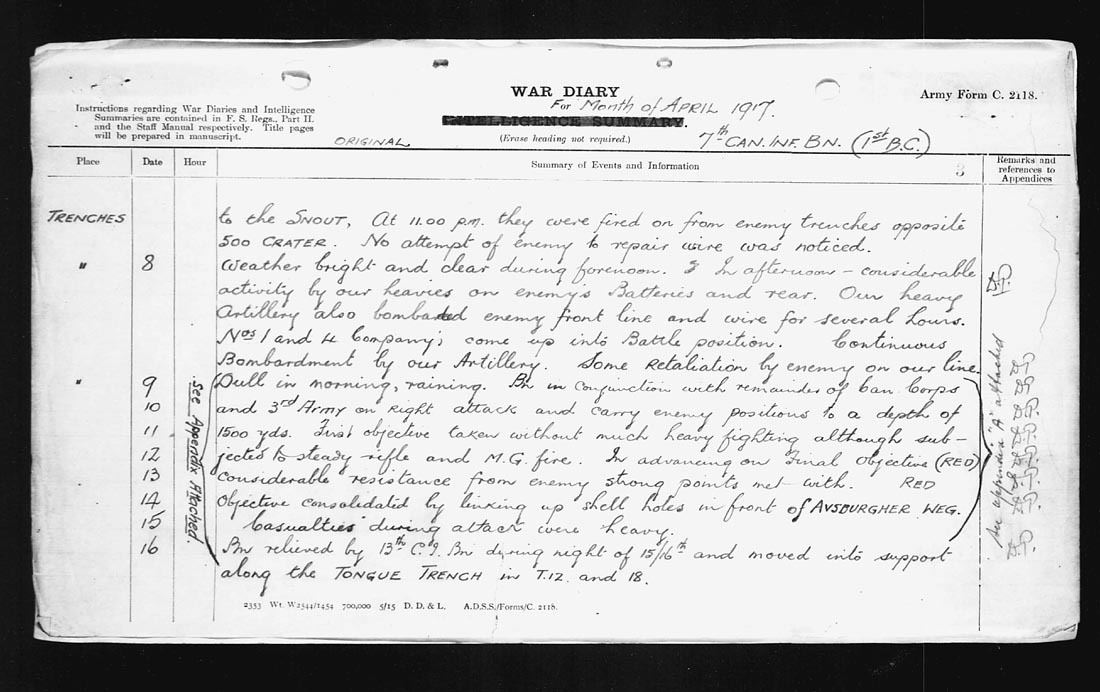 WAR DIARY
For Month of APRIL 1917.
INTELLIGENCE SUMMARY.
(Erase heading not required.)
Army Form C. 2118.
Instructions regarding War Diaries and Intelligence
Summaries are contained in F. S. Regs., Part II.
and the Staff Manual respectively. Title pages
will be prepared in manuscript.
ORIGINAL
7th CAN. INF. BN. (1st B.C.)
Place Date Hour Summary of Events and Information 3 Remarks and
references to
Appendices
TRENCHES to the SNOUT, At 11.00 p.m. they were fired on from enemy trenches opposite
500 CRATER. No attempt of enemy to repair wire was noticed.
" 8 Weather bright and clear during forenoon. In afternoon - considerable
activity by our heavies on enemy's Batteries and rear. Our heavy
Artillery also bombarded enemy front line and wire for several hours.
Nos 1 and 4 Company's come up into Battle position. Continuous
Bombardment by our Artillery. Some Retaliation by enemy on our line.
" 9 Dull in morning, raining. Bn in conjunction with remainder of Can. Corps
10 and 3rd Army on Right attack and carry enemy positions to a depth of
11 1500 yds. First objective taken without much heavy fighting although sub-
12 jected to steady rifle and M.G. fire. In advancing on Final Objective (RED)
13 considerable resistance from enemy strong points met with. RED
14 Objective consolidated by linking up shell holes in front of AVSBURGHER WEG.
15 Casualties during attack were heavy.
16 Bn relieved by 13th C.I. Bn during night of 15/16th and moved into support
along the TONGUE TRENCH in T.12. and 18.
See Appendix Attached.
See appendix "A" attached
D.P.
D.P.
D.P.
D.P.
D.P.
D.P.
D.P.
D.P.
D.P.
2353 Wt. W2544/1454 700,000 5/15 D. D. & L. A.D.S.S./Forms/C. 2118.